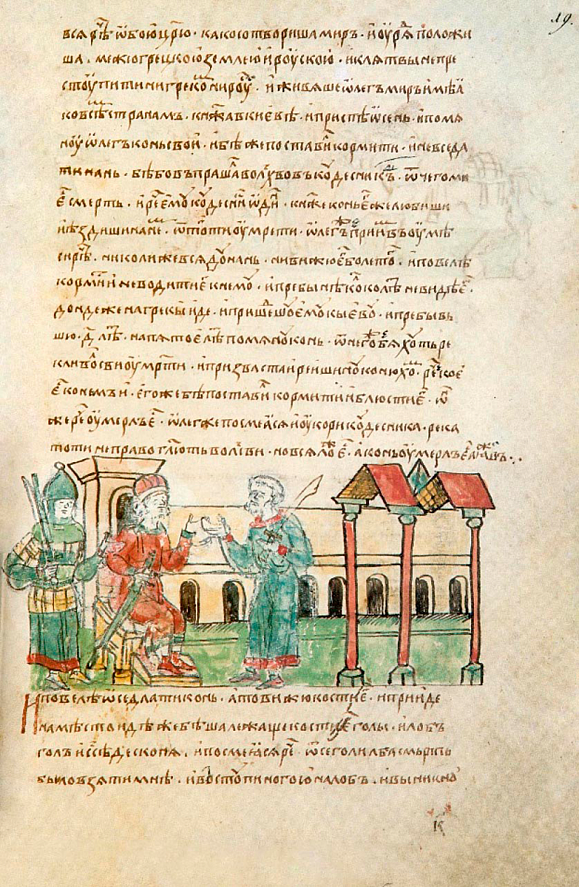 всѧ рѣч ѿ обою ц҃рю · како сотвориша миръ · и оурѧд положи
ша · межю грецкою землею и роускою · и клѧтвы не пре
стоупити ни греком ни роу · и живѧше ѡлегъ миръ имѣа
ко всѣм странамъ · кнѧжа в киевѣ · и приспѣ ѡсень · и помѧ
ноу ѡлегъ конь свои · и бѣ же поставил кормити · и не вседа
ти на нь · бѣ бо въпрашал волъхвовъ коудесникъ · ѿ чего ми
е смерть · и ре емоу коудесник ѡдин · кнѧже конь е же любиши
и ѣздиши на нем · ѿ того ти оумрети · ѡлег же приим въ оумѣ
си рѣ · николи же всѧдоу на нь · ни вижю е боле того · и повелѣ
кормити и не водити е к немоу · и пребы нѣколко лѣ не видѣ е ·
дондеже на грекы иде · и пришедшоу емоу къ киевоу · и пребывь
шю · д҃ · лѣ · на пѧтое лѣ помѧноу конь · ѿ него бѧхоуть ре
кли волсви оумрѣти · и призва старѣишиноу конюхом · ре кое
е конь мъи · его же бѣ поставил кормити и блюсти е · ѡн
же ре оумерлъ е · ѡлег же посмеѧсѧ и оукори коудесника · река
то ти не право глють волсви · но всѧ ложь е · а конь оумерлъ е а ѧ живъ ·
И повелѣ ѡседлати конь · а то вижю кости е · и прииде
на мѣсто идѣже бѣша лежаще кости е голы · и лобъ
голъ · и ссѣде с конѧ · и посмеѧсѧ ре · ѿ сего ли лба смьрть
было взѧти мнѣ · и востоупи ногою на лобъ · и выникноу